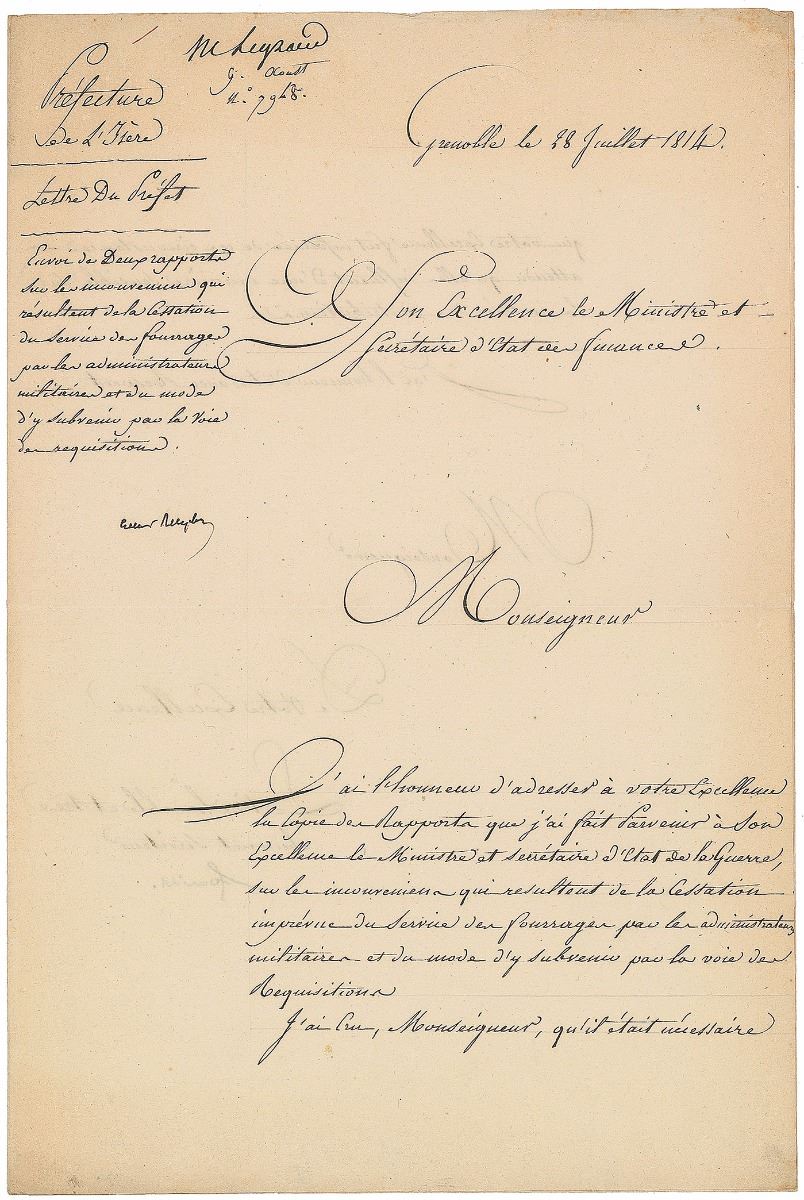 Préfecture
de L'Isère
Lettre Du Préfet
G. Aoust
N.° 7968.
Grenoble le 28 Juillet 1814.
Envoi de Deux rapports
sur les inconveniens qui
résultent de la Cessation
du service des fourrages
par les administrateurs
militaires et du mode
d'y subvenir par la voie
des requisitions.
A Son Excellence le Ministre et
Secrétaire d'Etat des finances.
Monseigneur
J'ai l'honneur d'adresser à votre Excellence
la Copie des Rapports que j'ai fait Parvenir à Son
Excellence le Ministre et secrétaire d'Etat de la Guerre,
sur les inconveniens qui resultent de la Cessation
imprévue du service des fourrages par les administrateurs
militaires et du mode d'y subvenir par la voie des
Requisitions
J'ai Cru, Monseigneur, qu'il était nécessaire